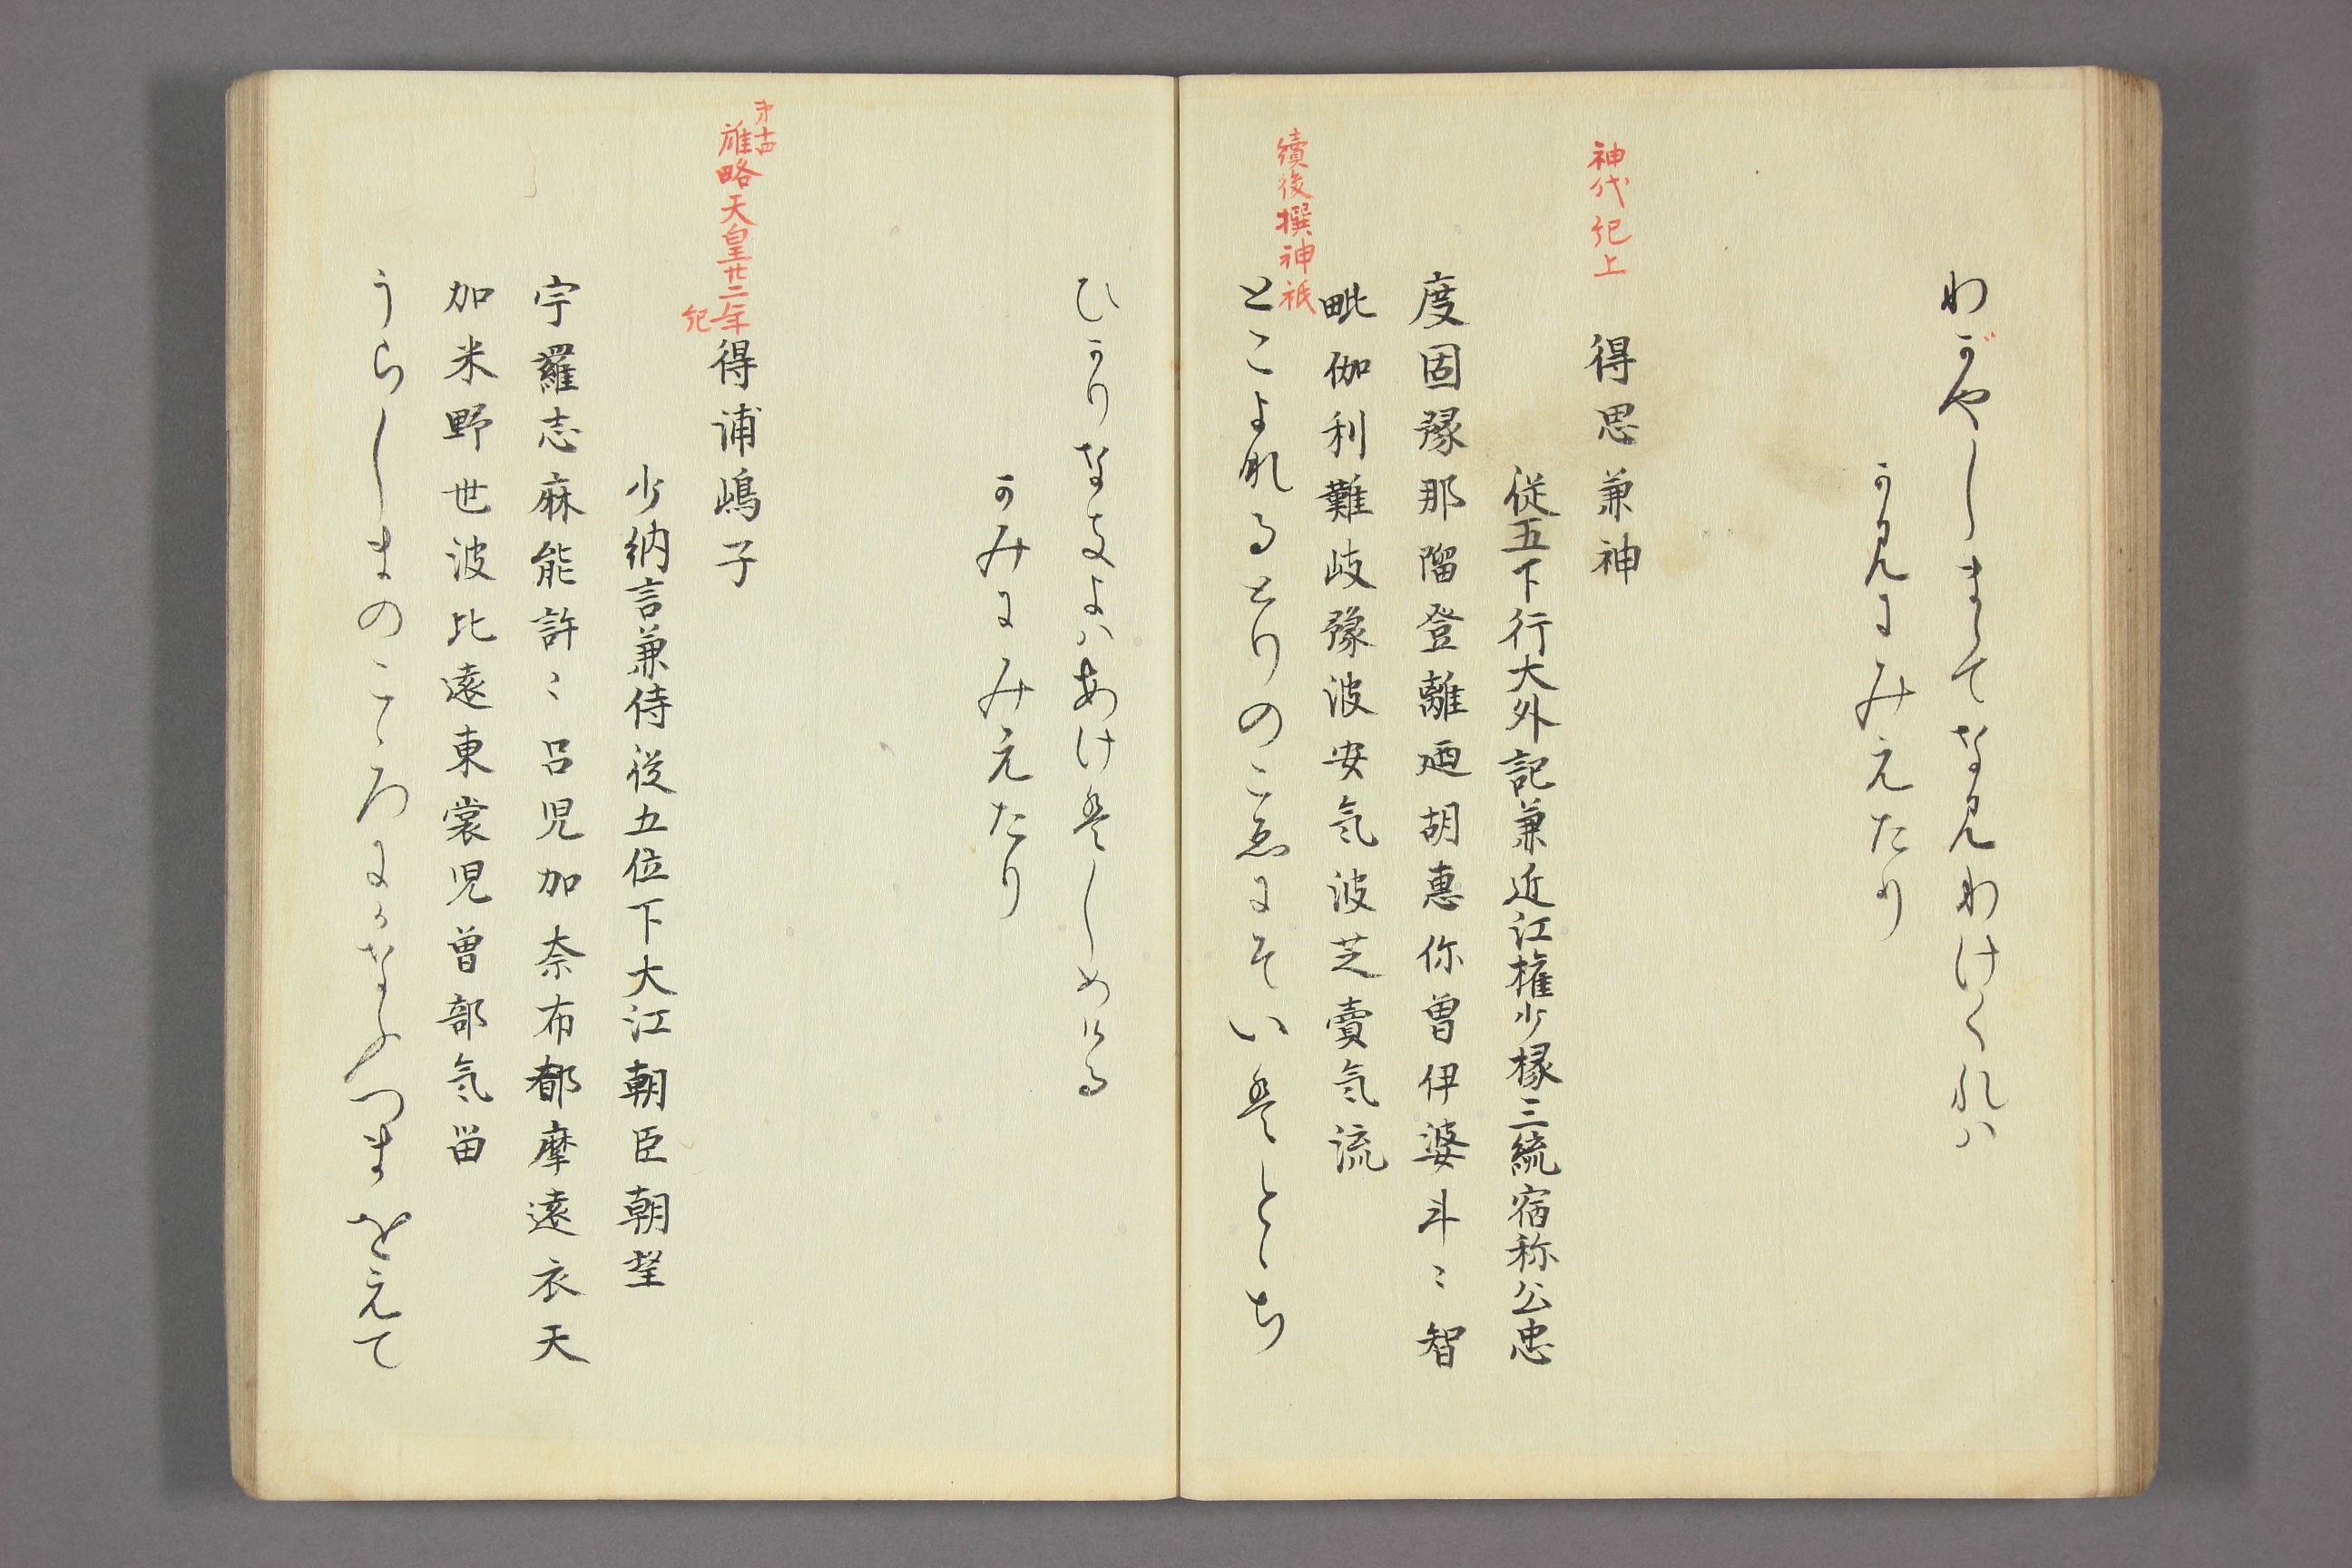 わがやしまゝてなみわけくれは
かみにみえたり
神代紀上
得思兼神
従五下行大外記兼近江権少掾三統宿称公忠
度固豫那瑠登離廼胡惠你曽伊婆斗〻智
毗伽利難岐豫波安氣波芝賣氣流
續後撰神祇
とこよなるとりのこゑにそいはとゝち
ひかりなきよはあけはしめける
かみにみえたり
第十四
雄略天皇廿二年紀
得浦嶋子
少納言兼侍従五位下大江朝臣朝望
宇羅志麻能許〻呂児加奈布都摩遠衣天
加米野世波比遠東裳児曽部気畄
うらしまのこゝろにかなふつまをえて